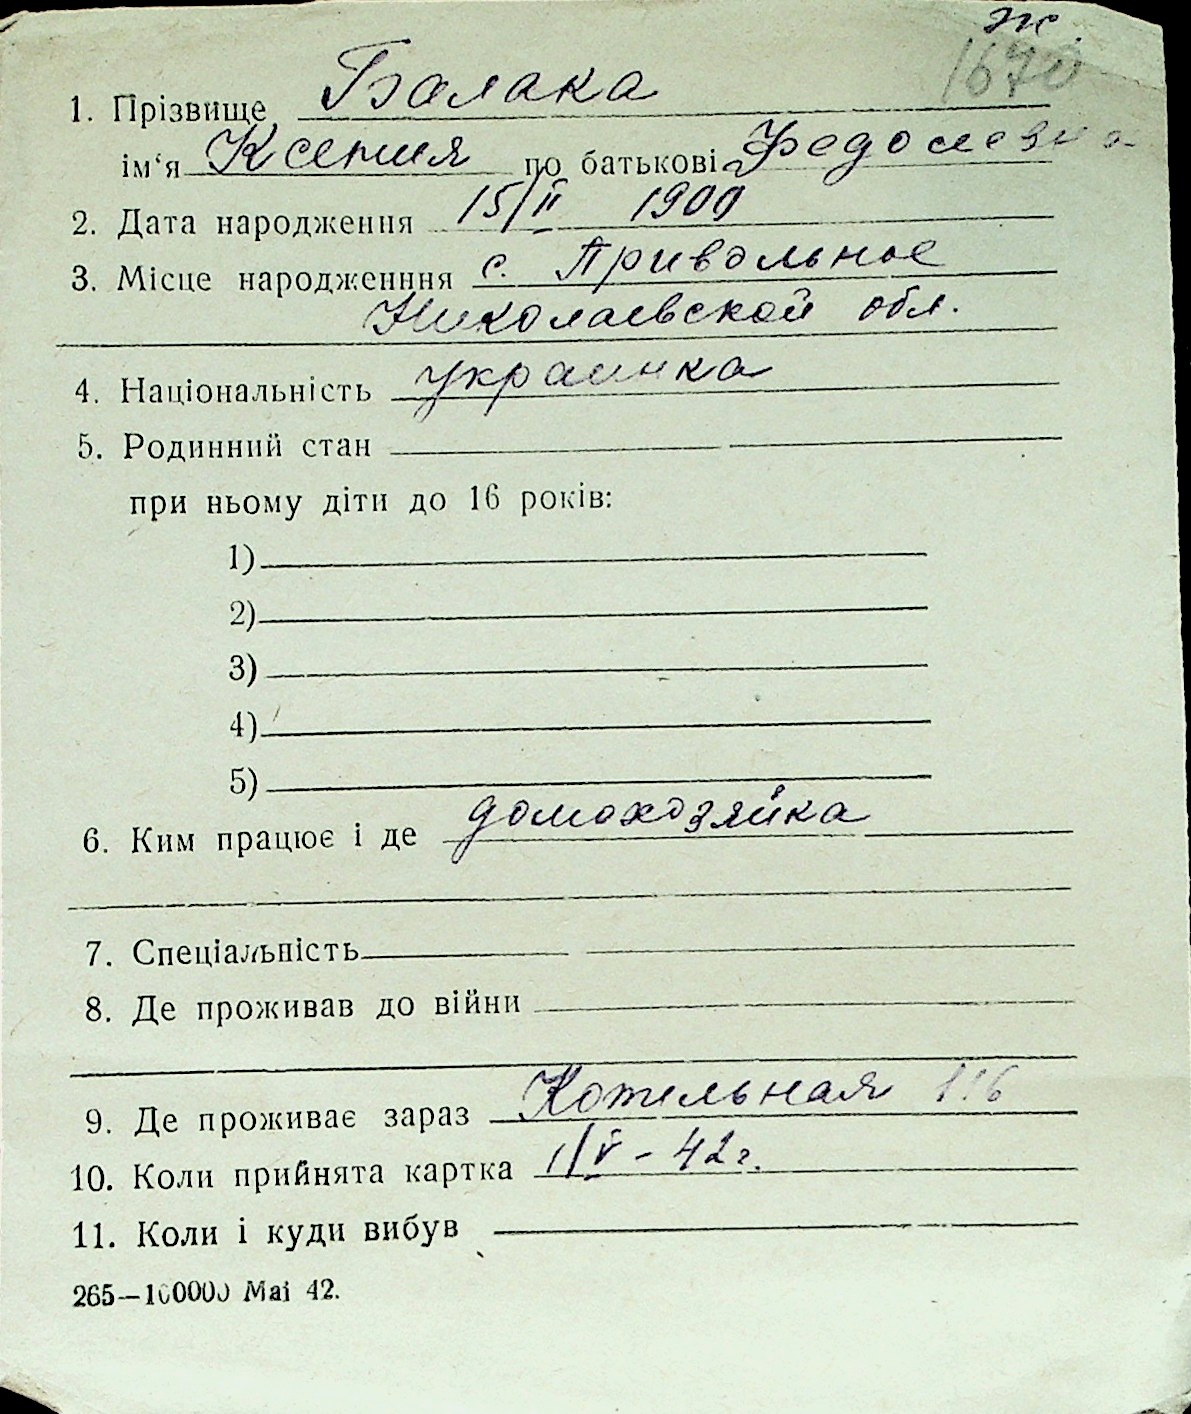 ж.
1670
1. Прізвище Балака
ім‘я Ксения по батькові Федосеевна
2. Дата народження 15/II 1900
3. Місце народженння с. Привольное
Николаевской обл.
4. Національність украинка
5. Родинний стан
при ньому діти до 16 років:
1)
2)
3)
4)
5)
6. Ким працює і де домохозяйка
7. Спеціальність
8. Де проживав до війни
9. Де проживає зараз Котельная 116
10. Коли прийнята картка 1/V - 42 г.
11. Коли і куди вибув
265—100000 Mai 42.